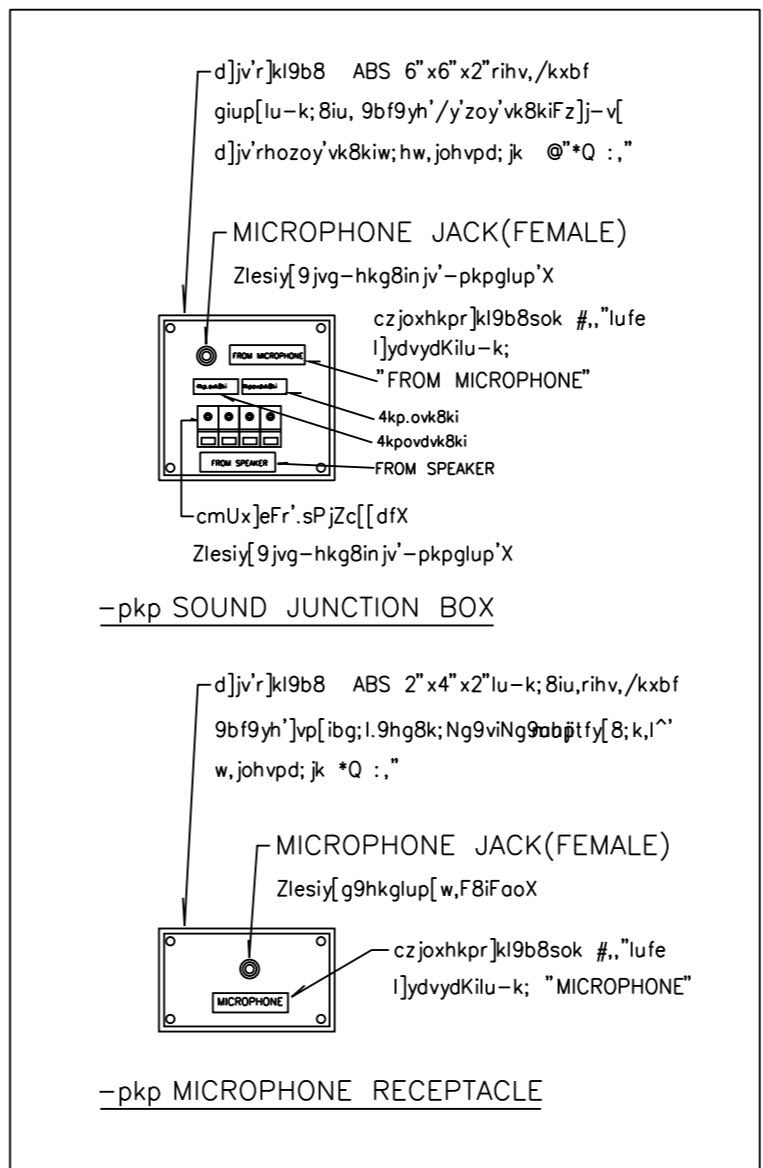 d]jv'r]kl9b8 ABS 6"x6"x2"rihv,/kxbf
giup[lu-k;8iu, 9bf9yh'/y'zoy'vk8kiFz]j-v[
d]jv'rhozoy'vk8kiw;hw,johvpd;jk @"*Q :,"
MICROPHONE JACK(FEMALE)
Zlesiy[9jvg-hkg8injv'-pkpglup'X
czjoxhkpr]kl9b8sok #,,"lufe
l]ydvydKilu-k;
"FROM MICROPHONE"
FROM MICROPHONE
4kp.ovk8ki
4kpovdvk8ki
FROM SPEAKER
FROM SPEAKER
cmUx]eFr'.sPjZc[[dfX
Zlesiy[9jvg-hkg8injv'-pkpglup'X
-pkp SOUND JUNCTION BOX
d]jv'r]kl9b8 ABS 2"x4"x2"lu-k;8iu,rihv,/kxbf
9bf9yh']vp[ibg;l.9hg8k;Ng9viNg
w,johvpd;jk *Q :,"
MICROPHONE JACK(FEMALE)
Zlesiy[g9hkglup[w,F8iFaoX
czjoxhkpr]kl9b8sok #,,"lufe
l]ydvydKilu-k; "MICROPHONE"
MICROPHONE
-pkp MICROPHONE RECEPTACLE